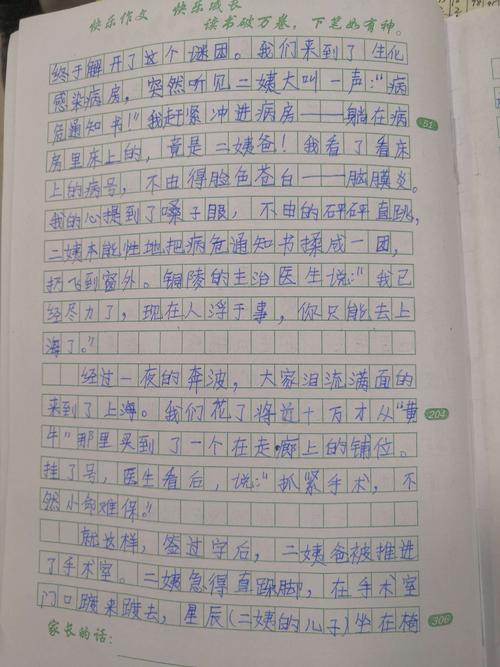 快乐作文 快乐成长
读书破万卷,下笔如有神。
终于解开了这个谜团。我们来到了生化
感染病房,突然听见二姨大叫一声:“病
危通知书!”我赶紧冲进病房——躺在病
51
房里床上的,竟是二姨爸!我看了看床
上的病号,不由得脸色苍白——脑膜炎。
我的心提到了嗓子眼,不由的砰砰直跳,
二姨本能性地把病危通知书揉成一团,
扔飞到窗外。铜陵的主治医生说:“我已
经尽力了,现在人浮于事,你只能去上
海了。”
经过一夜的奔波,大家泪流满面的
来到了上海。我们花了将近十万才从“黄
204
牛”那里买到了一个在走廊上的铺位。
挂了号,医生看后,说:“抓紧手术,不
然小命难保。”
就这样,签过字后,二姨爸被推进
了手术室。二姨急得直跺脚,在手术室
门口踱来踱去,星辰(二姨的儿子)坐在椅
306
家长的话: